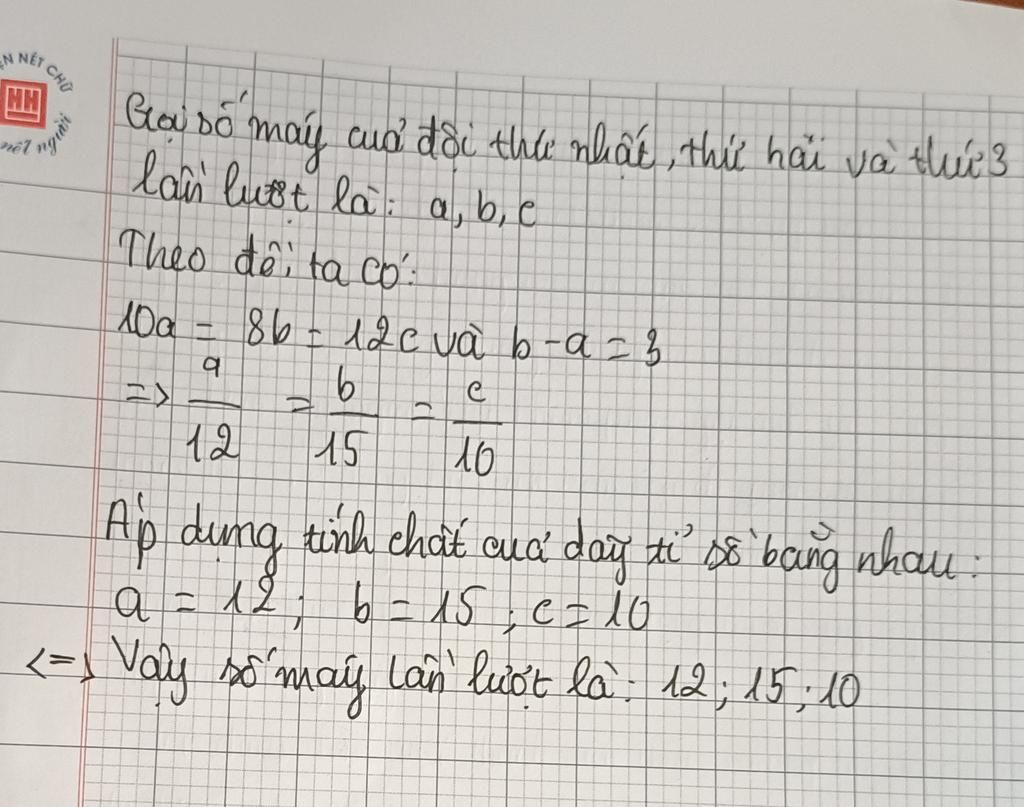 ỆN NÉT CHỮ
HH
nết người
Gọi số máy của đội thứ nhất, thứ hai và thứ 3
lần lượt là: a, b, c
Theo đề, ta có:
10a = 8b = 12c và b - a = 3
=> a/12 = b/15 = c/10
Áp dụng tính chất của dãy tỉ số bằng nhau:
a = 12; b = 15; c = 10
<=> Vậy số máy lần lượt là: 12; 15; 10